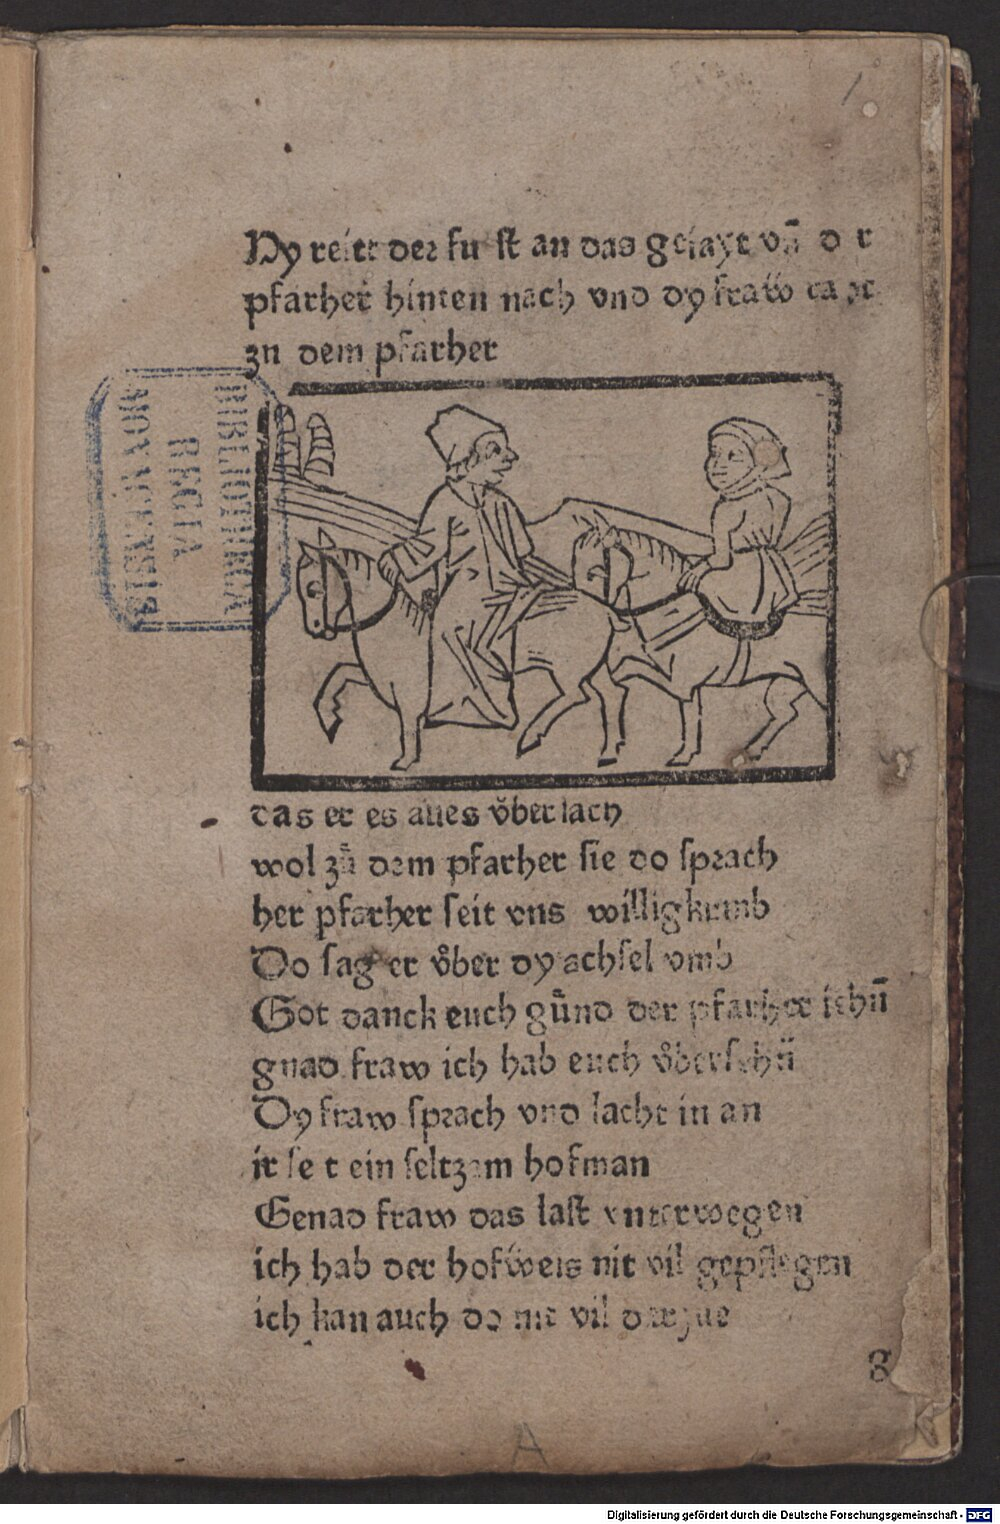 Hy reitt der fu st an das gejayt vn̄ d r
pfarher hinten nach vnd dy fraw
zu dem pfarher
BIBLIOTHECA
REGIA
MONACENSIS
das er es alles vͦberlach
wol zuͦ dem pfarher sie do sprach
her pfarher seit vns willigkumb
Do sag er vͦber dy achsel vmb
Got danck euch guͤnd der pfarher iehn̄
gnad fraw ich hab euch vͦbersehn̄
Dy fraw sprach vnd lacht in an
ir se t ein seltzam hofman
Genad fraw das last vnterwegen
ich hab der hofweis nit vil gepflegen
ich kan auch do nit vil darzue
8
A
Digitalisierung gefördert durch die Deutsche Forschungsgemeinschaft - DFG